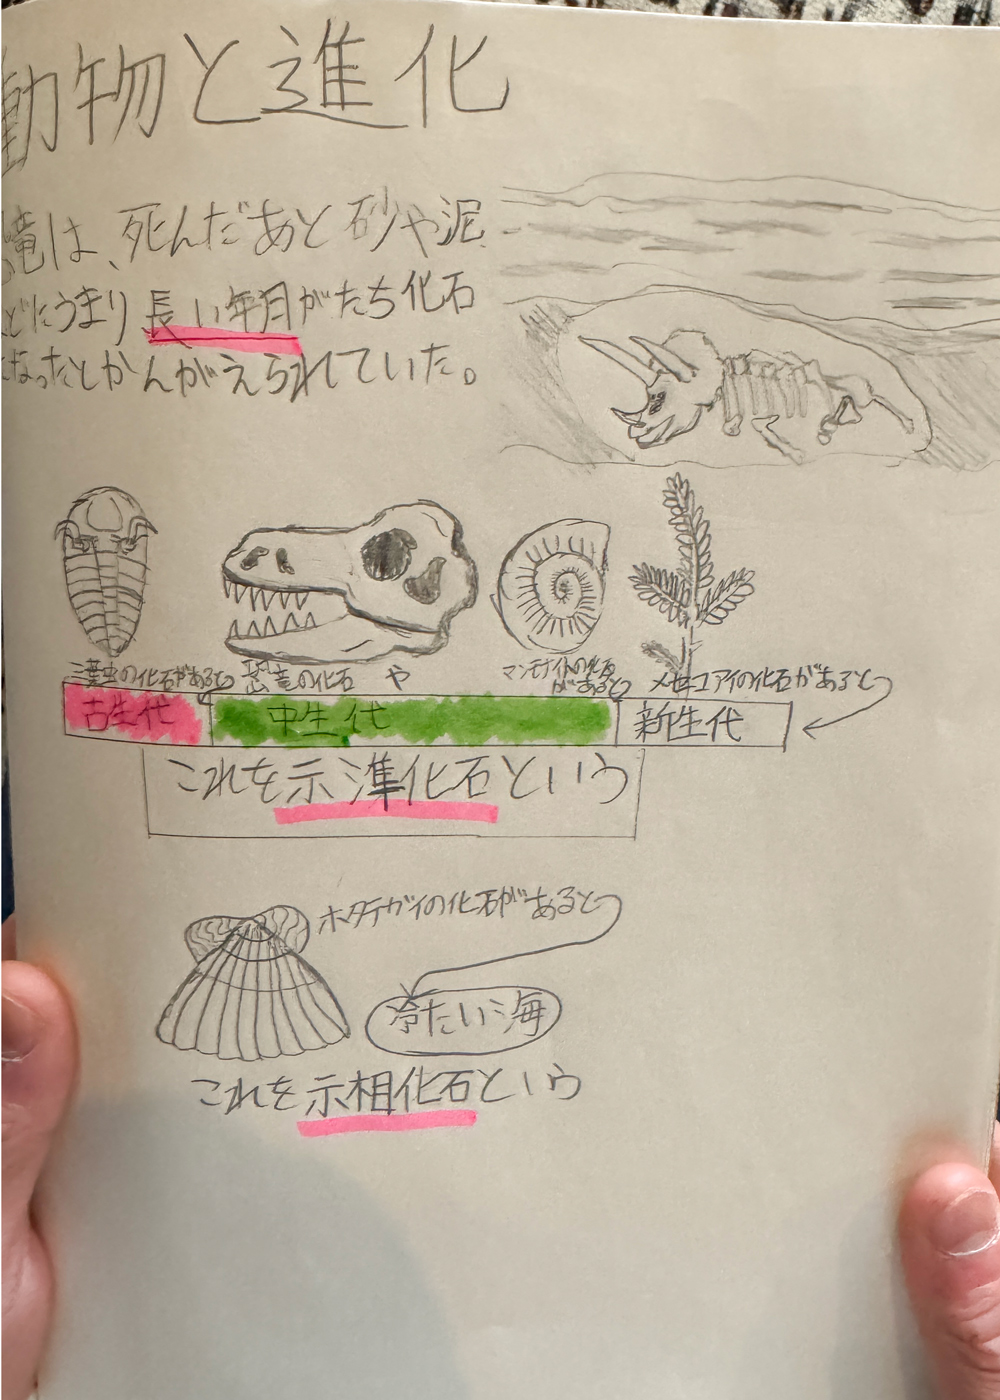 動物と進化
竜は、死んだあと砂や泥
どにうまり長い年月がたち化石
なったとかんがえられていた。
三葉虫の化石があると
恐竜の化石 や
マンテナイトの化石
があると
メセコアイの化石があると
古生代
中生代
新生代
これを示準化石という
ホタテガイの化石があると
冷たい海
これを示相化石という